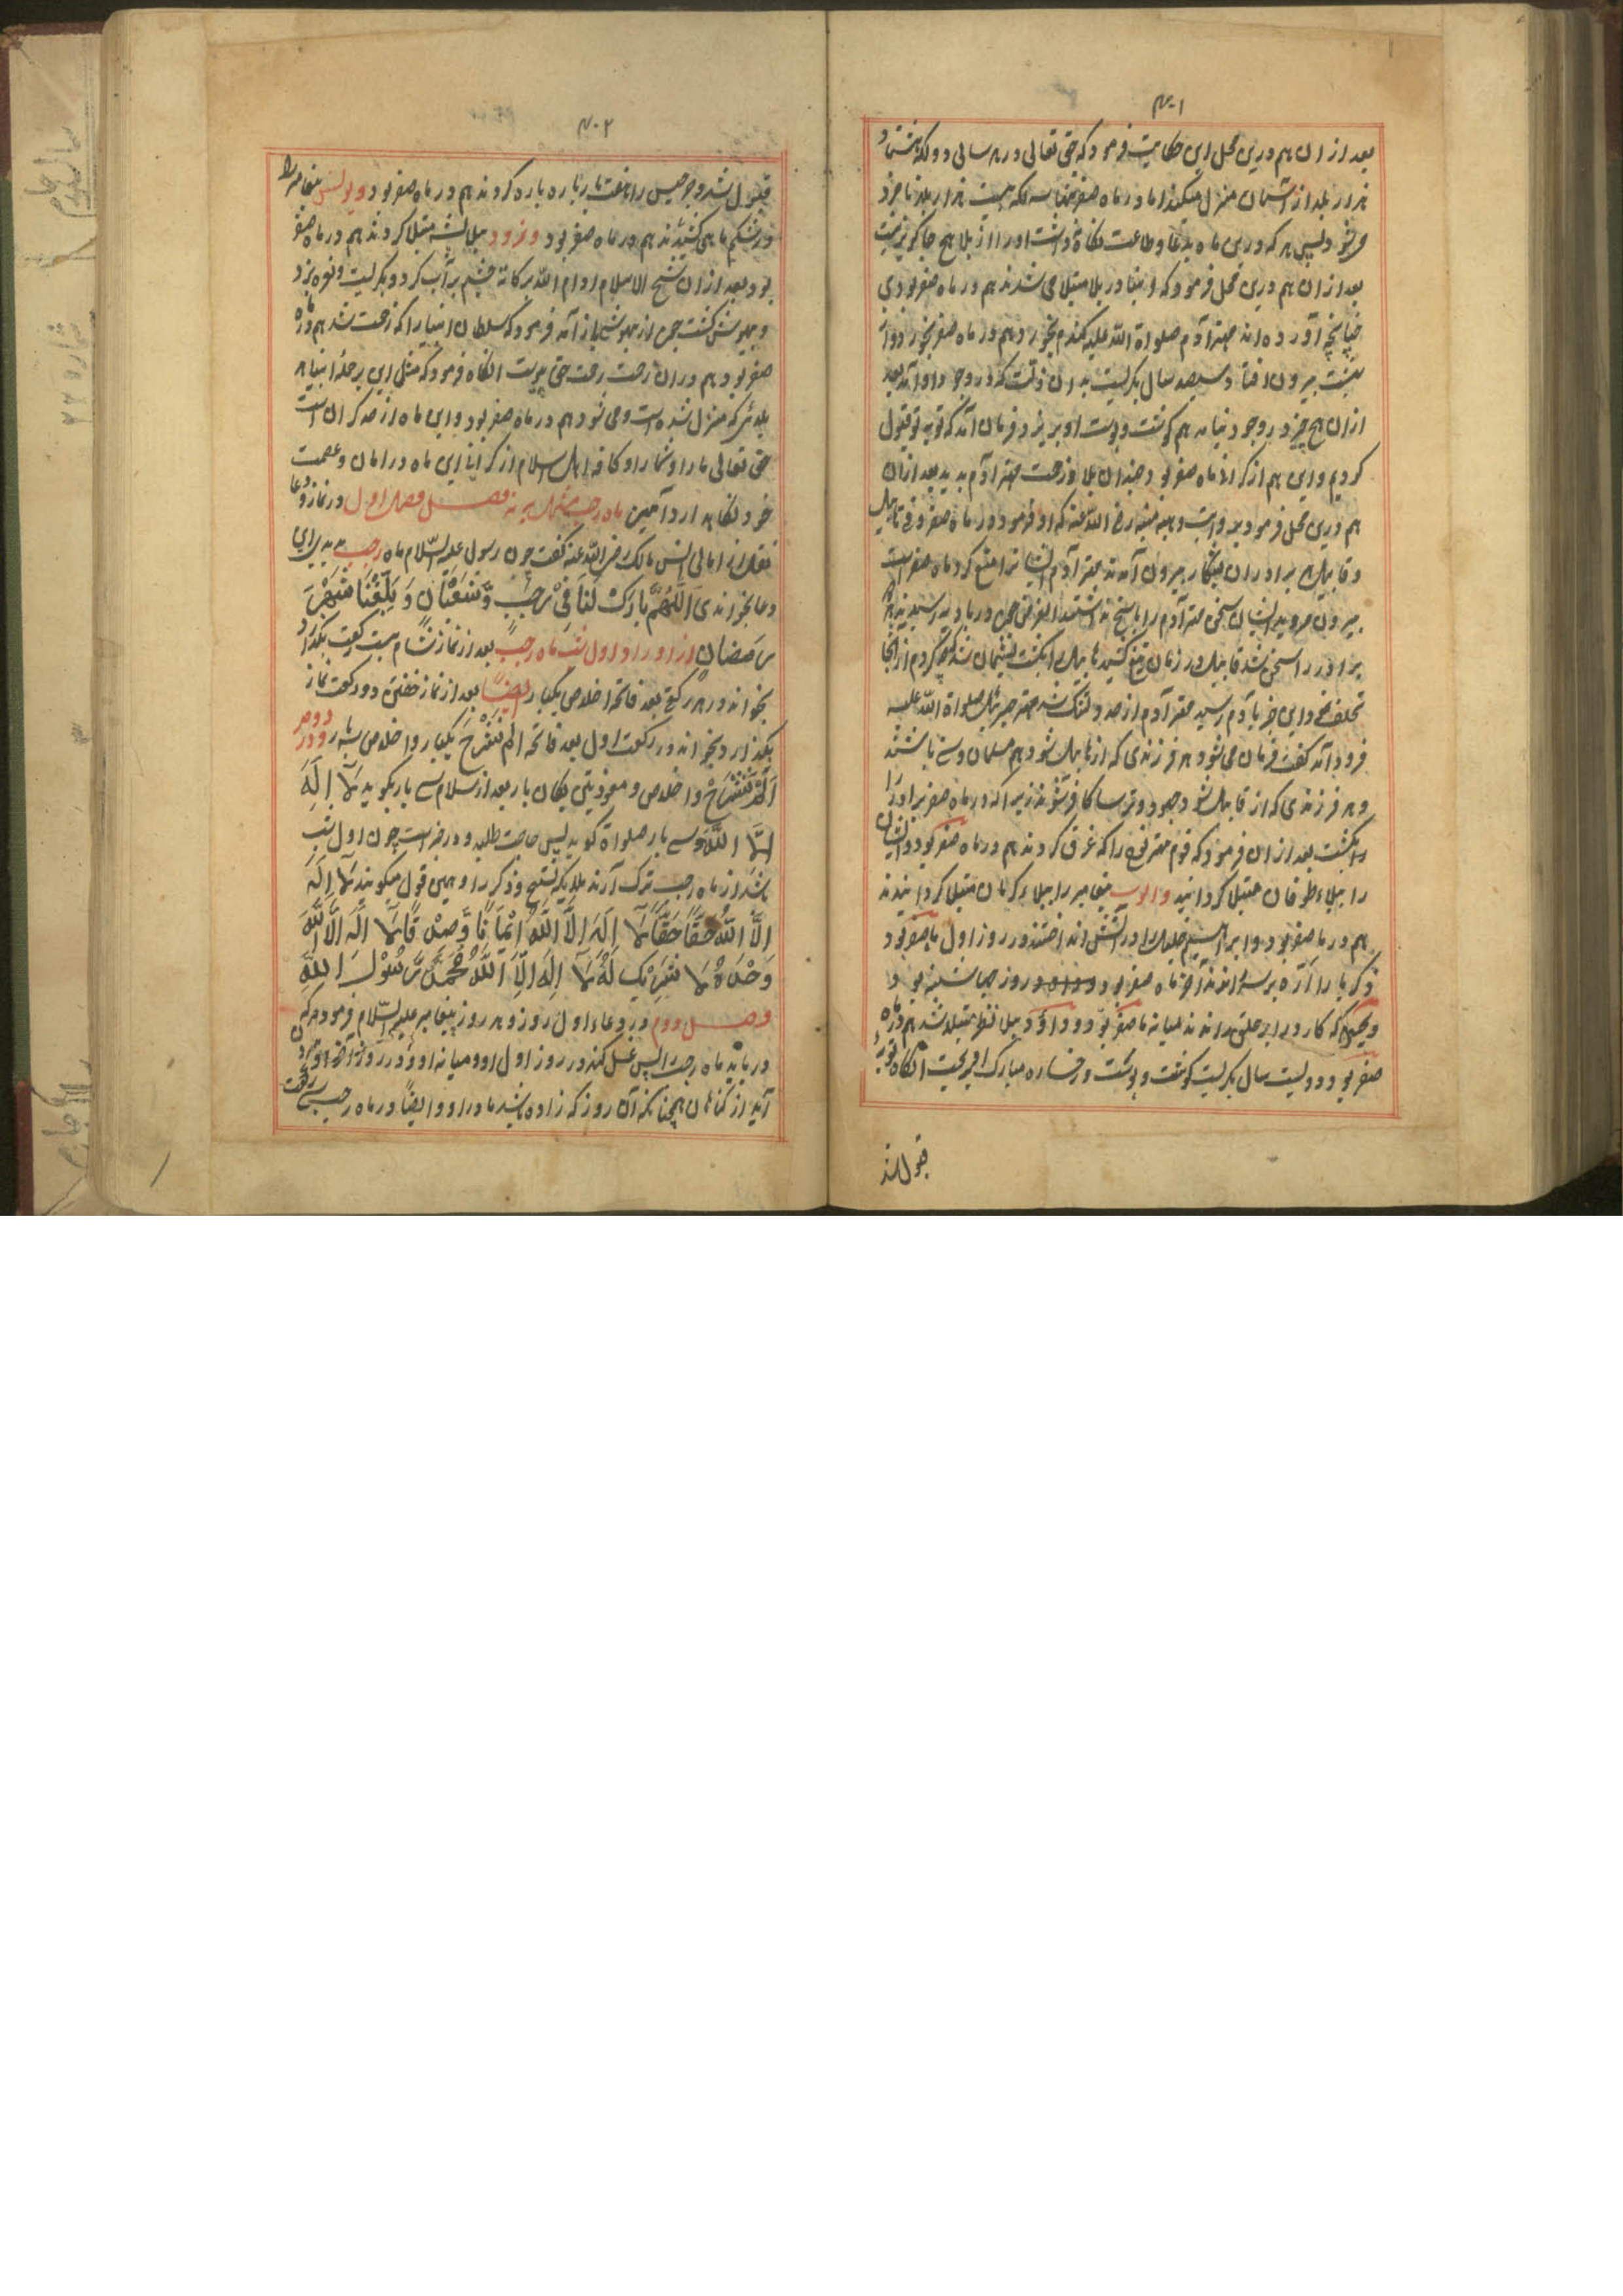 ۴۰۱
بعد ازان هم درین محل این حکایت فرمود که حق تعالی در هر سالی دو لکه هشتاد
هزار بلا از آسمان منزل میکند اما در ماه صفر لکه بیست هزار بلا نامزد
میشود پس هر که درین ماه بدعا و طاعت نگاه داشت او را از بلا هیچ
بعد ازان هم درین محل فرمود که انبیا در بلا مبتلا می شدند هم در ماه صفر بودی
چنانچه آورده اند مهتر آدم صلواة الله علیه گندم بخورد هم در ماه صفر بخورد و از
بهشت بیرون افتاد سیصد سال بگریست بدان زلت که در وجود او آمد بعد
ازان هیچ چیز در وجود نیامد هم گوشت و پوست او بریزد فرمان آمد که توبه تو قبول
کردیم و این هم از گرانی ماه صفر بود چندان بلا و زحمت مهتر آدم بدید بعد ازان
هم درین محل فرمود بروایت وهب منبه رضی الله عنه که او فرمود در ماه صفر
و قابیل هر دو برادران بشکار بیرون آمدند مهتر آدم ایشانرا منع کرد ماه صفر است
بیرون مروید ایشان سخن مهتر آدم را پاسخ نداشتند
برادر را سخن شد قابیل در زمان تیغ کشید هابیل را بکشت پشیمان شد که چه کردم از آنجا
و این خبر بآدم رسید مهتر آدم از حد دلتنگ شد مهتر جبرئیل صلواة الله علیه
فرود آمد گفت فرمان می شود هر فرزندی که از هابیل شود هم مسلمان و سنی باشند
و هر فرزندی که از قابیل شود جهود و ترسا و کافر شوند زیرا که در ماه صفر برادر را
بکشت بعد ازان فرمود که قوم مهتر نوح را که غرق کردند هم در ماه صفر بود و ایشان
را ببلاء طوفان مبتلا گردانید و ایوب پیغامبر را ببلاء کرمان مبتلا گردانیدند
هم در ماه صفر بود و ابراهیم خلیل را در آتش انداختند در روز اول ماه صفر بود
ذکریا را اره بر سر راندند آخر ماه صفر بود و روز چهارشنبه بود و
و یحیی را که کارد را بر حلق راندند میانه ماه صفر بود و داؤد ببلا مبتلا شد هم در ماه
صفر بود و دویست سال بگریست گوشت و پوست و رخساره مبارک او بریخت آنگاه توبه
قبول شد
۴۰۲
قبول شد و جرجیس را هفتاد بار پاره پاره کردند هم در ماه صفر بود و یونس پیغامبر را
در شکم ماهی کشیدند هم در ماه صفر بود و نمرود ببلا پشه مبتلا کردند هم در ماه صفر
بود بعد ازان شیخ الاسلام ادام الله برکاته چشم پر آب کرد و بگریست و نعره بزد
و بیهوش گشت چون از بیهوشی باز آمد فرمود که سلطان انبیا را که زحمت شد هم در ماه
صفر بود هم دران زحمت برحمت حق پیوست آنگاه فرمود که مثل این بر جمله انبیا هر
بلائی که منزل شده است و می شود هم در ماه صفر بود و این ماه از حد گران است
حق تعالی ما را و شما را و کافه اهل اسلام از گرانی این ماه در امان و عصمت
خود نگاه دارد آمین ماه رجب مشتمل بر نه فصل فصل اول در نماز و دعا
نقل از امالی انس مالک رضی الله عنه گفت چون رسول علیه السلام ماه رجب بدیدی این
دعا بخواندی اَللّٰهُمَّ بَارِكْ لَنَا فِیْ رَجَبٍ وَّ شَعْبَانَ وَ بَلِّغْنَا شَهْرَ
رَمَضَانَ از اوراد اول شب ماه رجب بعد از نماز شام بیست رکعت بگذارد
بخواند در هر رکعتی بعد فاتحه اخلاص یکبار ایضاً بعد از نماز خفتن دو رکعت نماز
بگذارد بخواند در رکعت اول بعد فاتحه الم نشرح یکبار و اخلاص سه بار و در دوم
اَلَمْ نَشْرَحْ و اخلاص و معوذتین یکان بار بعد از سلام سی بار بگوید لَا اِلٰهَ
اِلَّا اللهُ و سی بار صلواة گوید پس حاجت طلبد و در خبر است چون اول شب
باشد از ماه رجب ترک آرند ملایکه تسبیح و ذکر را و همین قول میگویند لَا اِلٰهَ
اِلَّا اللهُ حَقًّا حَقًّا لَا اِلٰهَ اِلَّا اللهُ اِیْمَانًا وَّ صِدْقًا لَا اِلٰهَ اِلَّا اللهُ
وَحْدَهُ لَا شَرِیْكَ لَهُ لَا اِلٰهَ اِلَّا اللهُ مُحَمَّدٌ رَّسُوْلُ اللهِ
فصل دوم در دعاء اول روز و هر روز پیغامبر علیه السلام فرمود هر که
دریابد ماه رجب را پس غسل کند در روز اول او و میانه او و در روز آخر او بیرون
آید از گناهان همچنانکه آن روز که زاده باشد مادر او و ایضاً در ماه رجب